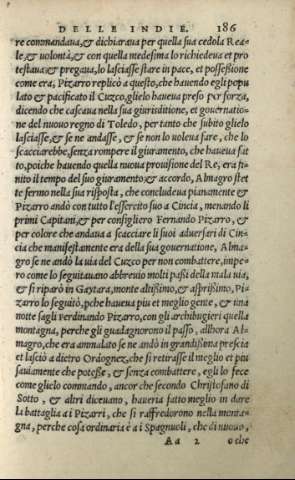 DELLE INDIE. 186
re commandaua, & dichiaraua per quella sua cedola Rea-
le, & uolontà, & con quella medesima lo richiedeua et pro
testaua & pregaua, lo lasciasse stare in pace, et possessione
come era, Pizarro replicò a questo, che hauendo egli popu
lato & pacificato il Cuzco, glielo haueua preso per forza,
dicendo che cascaua nella sua giuriditione, et gouernatio-
ne del nuouo regno di Toledo, per tanto che subito glielo
lasciasse, & se ne andasse, & se non lo uoleua fare, che lo
scacciarebbe, senza rompere il giuramento, che haueua fat
to, poiche hauendo quella nuoua prouisione del Re, era fi-
nito il tempo del suo giuramento & accordo, Almagro stet
te fermo nella sua risposta, che concludeua pianamente &
Pizarro andò con tutto l'essercito suo a Cincia, menando li
primi Capitani, & per consigliero Fernando Pizarro, &
per colore che andaua a scacciare li suoi aduersari di Cin-
cia che manifestamente era della sua gouernatione, Alma-
gro se ne andò la uia del Cuzco per non combattere, impe-
ro come lo seguitauano abbreuio molti passi della mala uia,
& si riparò in Gaytara, monte altissimo, & asprissimo, Pi-
zarro lo seguitò, pche haueua piu et meglio gente, & una
notte sagli Ferdinando Pizarro, con gli archibugieri quella
montagna, perche gli guadagnorono il passo, allhora Al-
magro, che era ammalato se ne andò in grandissima prescia
et lasciò a dietro Ordognez, che si retirasse il meglio et piu
sauiamente che potesse, & senza combattere, egli lo fece
come glielo commando, ancor che secondo Christofano di
Sotto, & altri diceuano, haueria fatto meglio in dare
la battaglia a i Pizarri, che si raffredorono nella monta-
gna, perche cosa ordinaria è a i Spagnuoli, che di nuouo,
Aa 2 oche